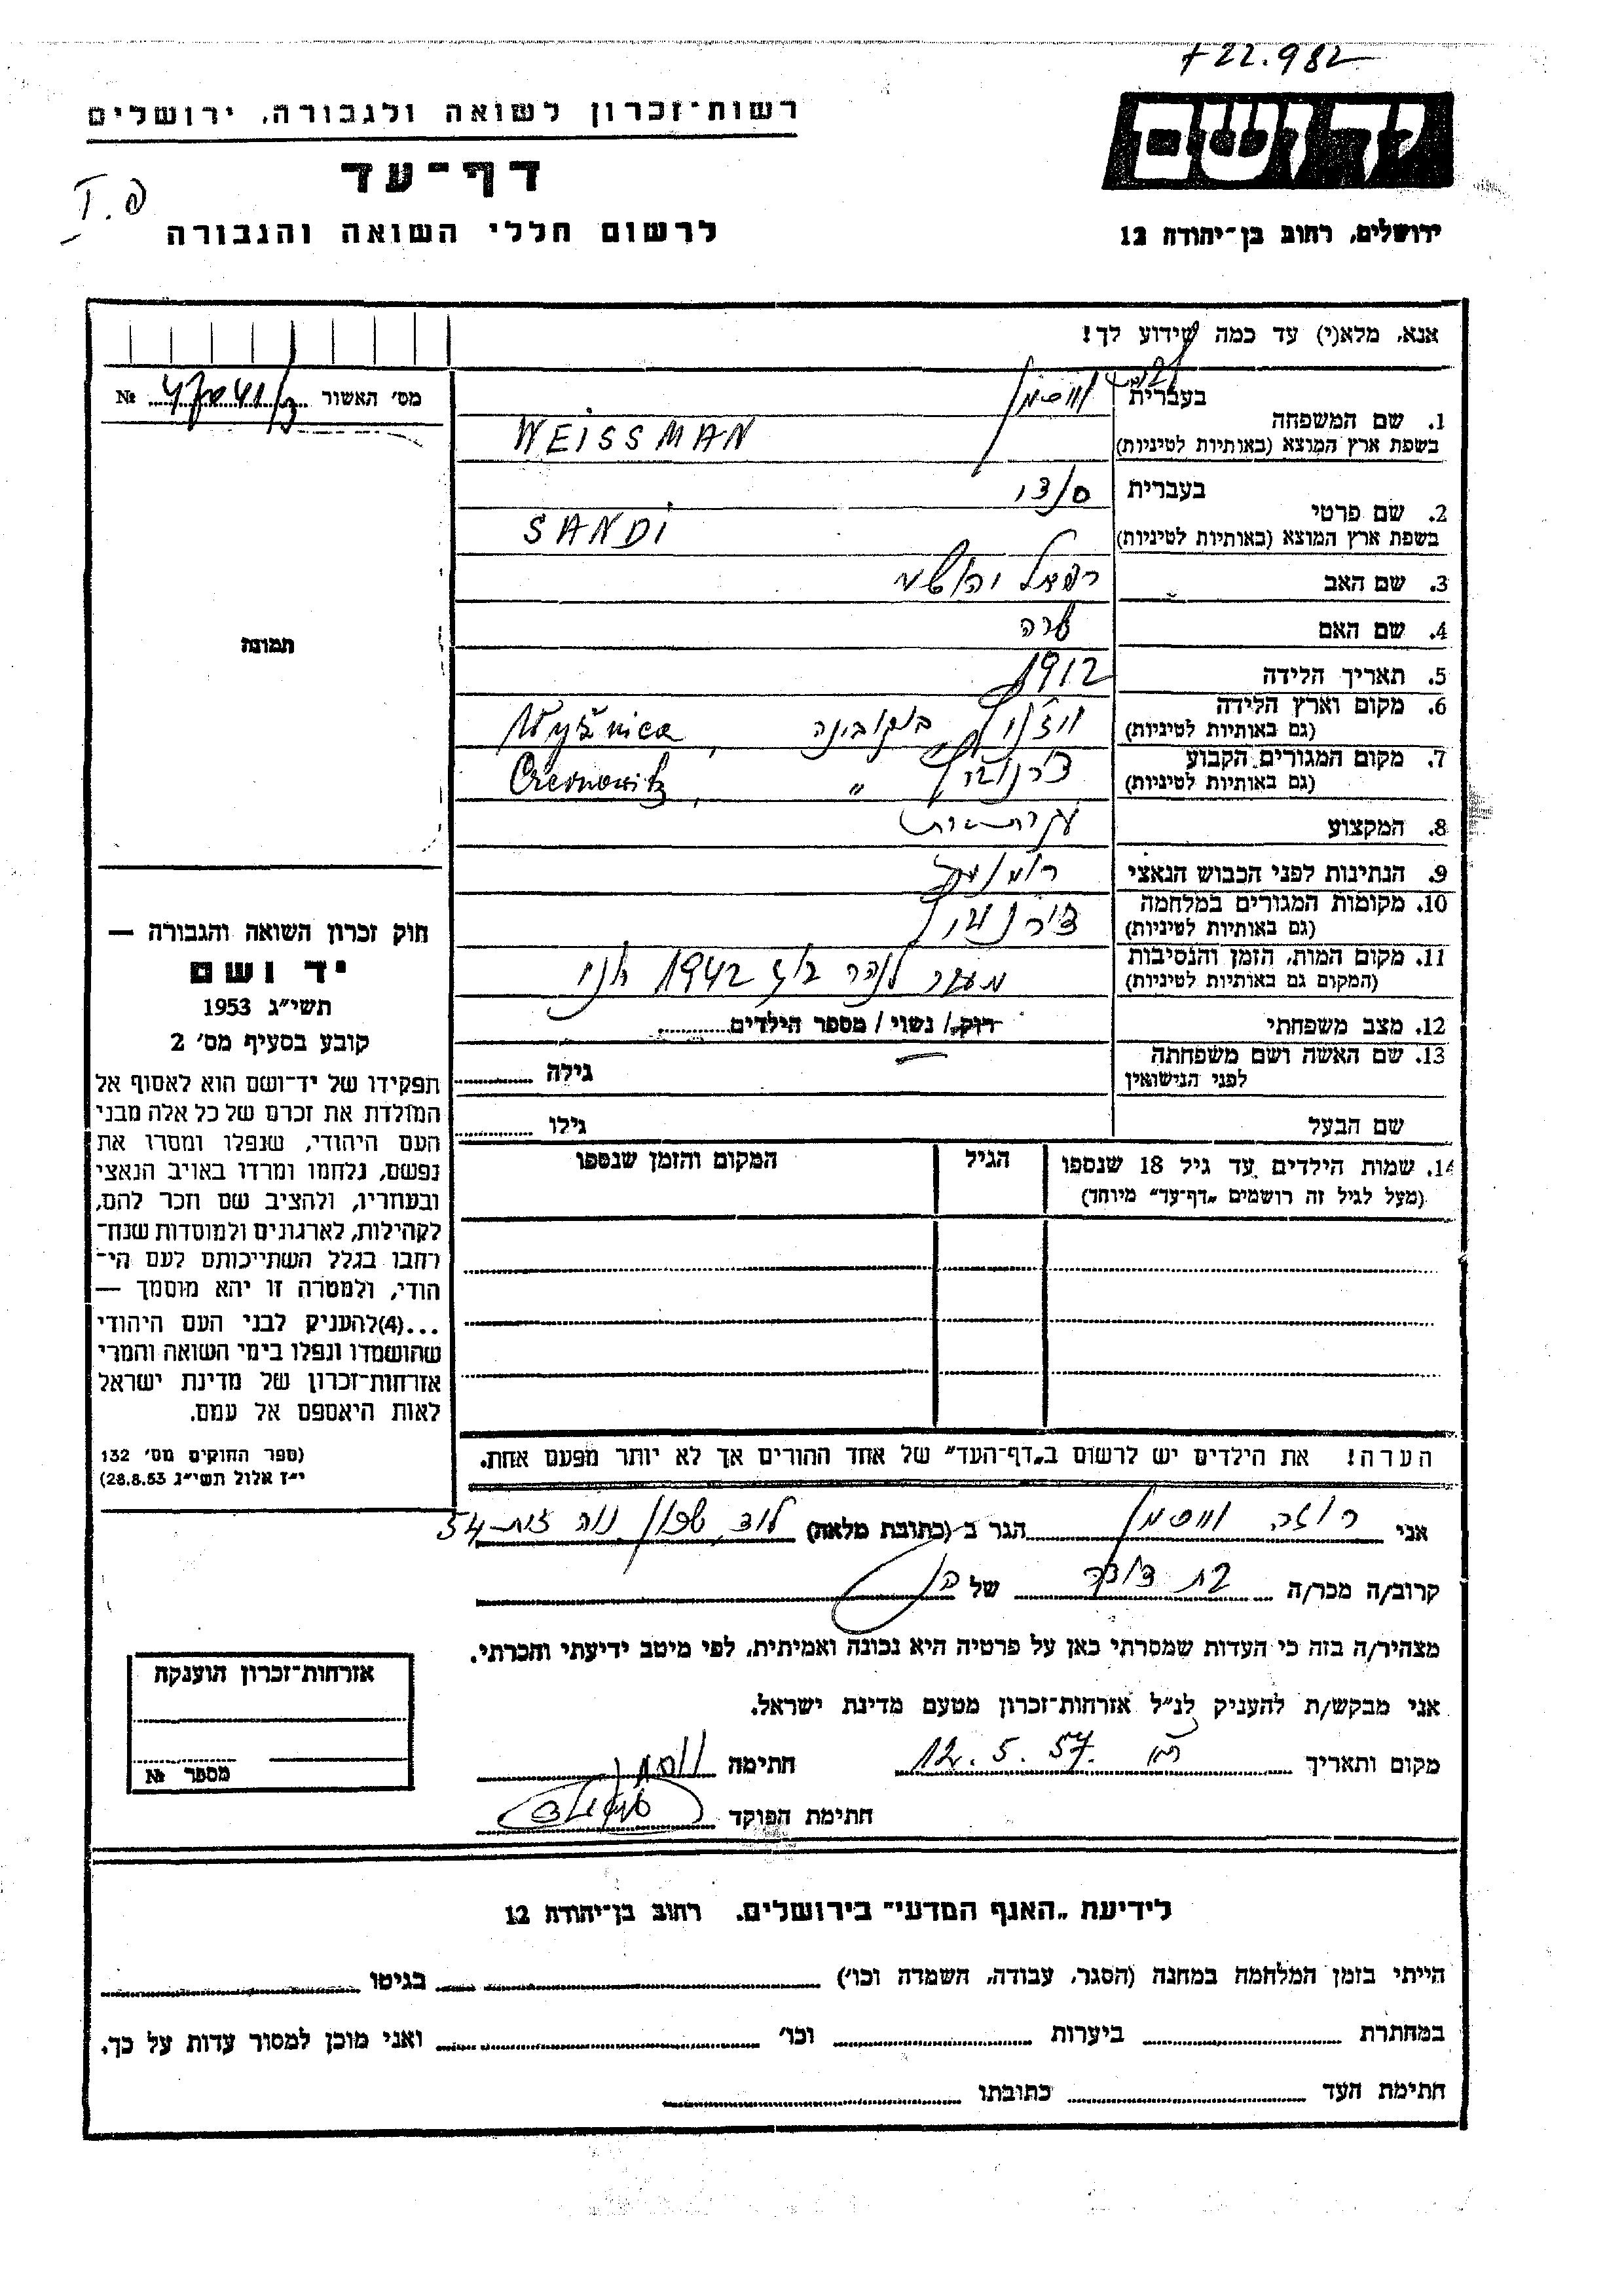 +22.982
רשות־זכרון לשואה ולגבורה, ירושלים
דף־עד
לרשום חללי השואה והגבורה
ירושלים, רחוב בן־יהודה 12
אנא, מלא(י) עד כמה שידוע לך!
מס׳ האשור №
1. שם המשפחה
בעברית וויסמן
בשפת ארץ המוצא (באותיות לטיניות) WEISSMAN
2. שם פרטי
בעברית סנדי
בשפת ארץ המוצא (באותיות לטיניות) SANDI
3. שם האב
4. שם האם שרה
5. תאריך הלידה 1912
6. מקום וארץ הלידה
(גם באותיות לטיניות) בוקובינה, Wyžnica
7. מקום המגורים הקבוע
(גם באותיות לטיניות) " , Czernowitz
8. המקצוע
9. הנתינות לפני הכבוש הנאצי
10. מקומות המגורים במלחמה
(גם באותיות לטיניות)
11. מקום המות, הזמן והנסיבות
(המקום גם באותיות לטיניות) מעבר לנהר בוג 1942
12. מצב משפחתי רווק / נשוי / מספר הילדים
13. שם האשה ושם משפחתה
לפני הנישואין — גילה
שם הבעל גילו
14. שמות הילדים עד גיל 18 שנספו
(מעל לגיל זה רושמים „דף־עד״ מיוחד)
הגיל
המקום והזמן שנספו
הערה! את הילדים יש לרשום ב„דף־העד״ של אחד ההורים אך לא יותר מפעם אחת.
תמונה
חוק זכרון השואה והגבורה —
יד ושם
תשי״ג 1953
קובע בסעיף מס׳ 2
תפקידו של יד־ושם הוא לאסוף אל
המולדת את זכרם של כל אלה מבני
העם היהודי, שנפלו ומסרו את
נפשם, נלחמו ומרדו באויב הנאצי
ובעוזריו, ולהציב שם וזכר להם,
לקהילות, לארגונים ולמוסדות שנח־
רחבו בגלל השתייכותם לעם הי־
הודי, ולמטרה זו יהא מוסמך —
...(4)להעניק לבני העם היהודי
שהושמדו ונפלו בימי השואה והמרי
אזרחות־זכרון של מדינת ישראל
לאות היאספם אל עמם.
(ספר החוקים מס׳ 132
י״ז אלול תשי״ג 28.8.53)
אני רוזה וויסמן הגר ב־(כתובת מלאה) לוד, שכון נוה זית 54
קרוב/ה מכר/ה של
מצהיר/ה בזה כי העדות שמסרתי כאן על פרטיה היא נכונה ואמיתית, לפי מיטב ידיעתי והכרתי.
אני מבקש/ת להעניק לנ״ל אזרחות־זכרון מטעם מדינת ישראל.
מקום ותאריך 12.5.57 חתימה
חתימת הפוקד
אזרחות־זכרון הוענקה
מספר №
לידיעת „האגף המדעי״ בירושלים, רחוב בן־יהודה 12
הייתי בזמן המלחמה במחנה (הסגר, עבודה, השמדה וכו׳) בגיטו
במחתרת ביערות וכו׳ ואני מוכן למסור עדות על כך.
חתימת העד כתובתו